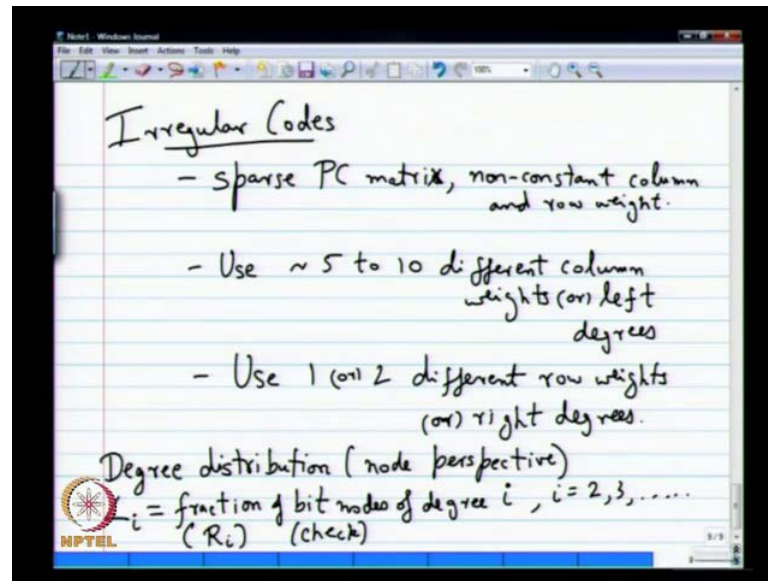 Note1 - Windows Journal
File Edit View Insert Actions Tools Help
100%
Irregular Codes
- sparse PC matrix, non-constant column
and row weight.
- Use ~ 5 to 10 different column
weights (or) left
degrees
- Use 1 (or) 2 different row weights
(or) right degrees.
Degree distribution (node perspective)
Li = fraction of bit nodes of degree i, i = 2, 3, .....
(Ri) (check)
NPTEL
9/9